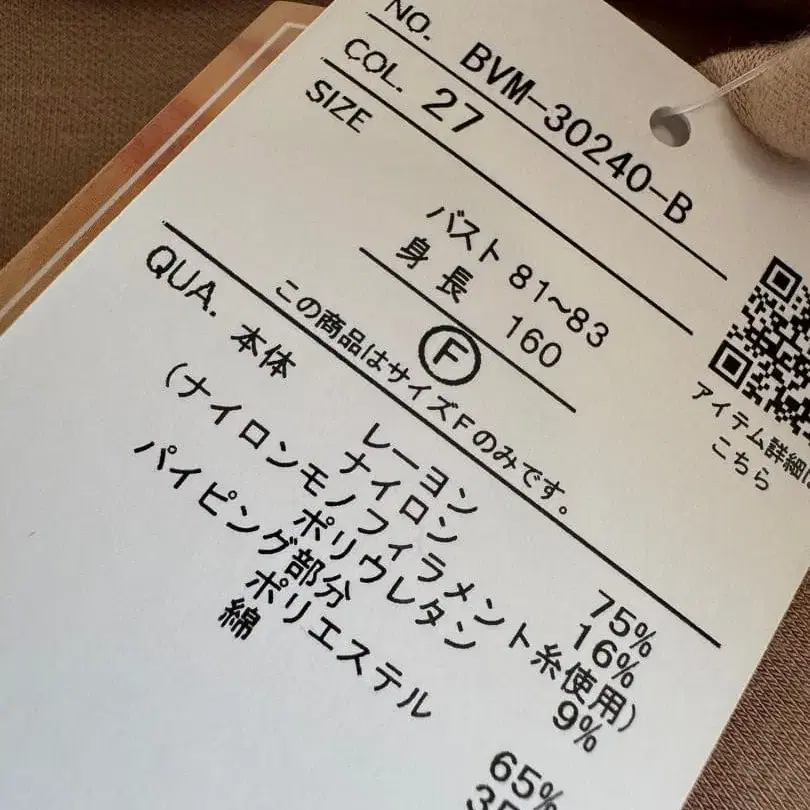 NO. BVM-30240-B
COL. 27
SIZE
バスト 81~83
身長 160
Ⓕ
この商品はサイズFのみです。
QUA. 本体
レーヨン 75%
ナイロン 16%
(ナイロンモノフィラメント糸使用)
ポリウレタン 9%
パイピング部分
ポリエステル 65%
綿
アイテム詳細は
こちら